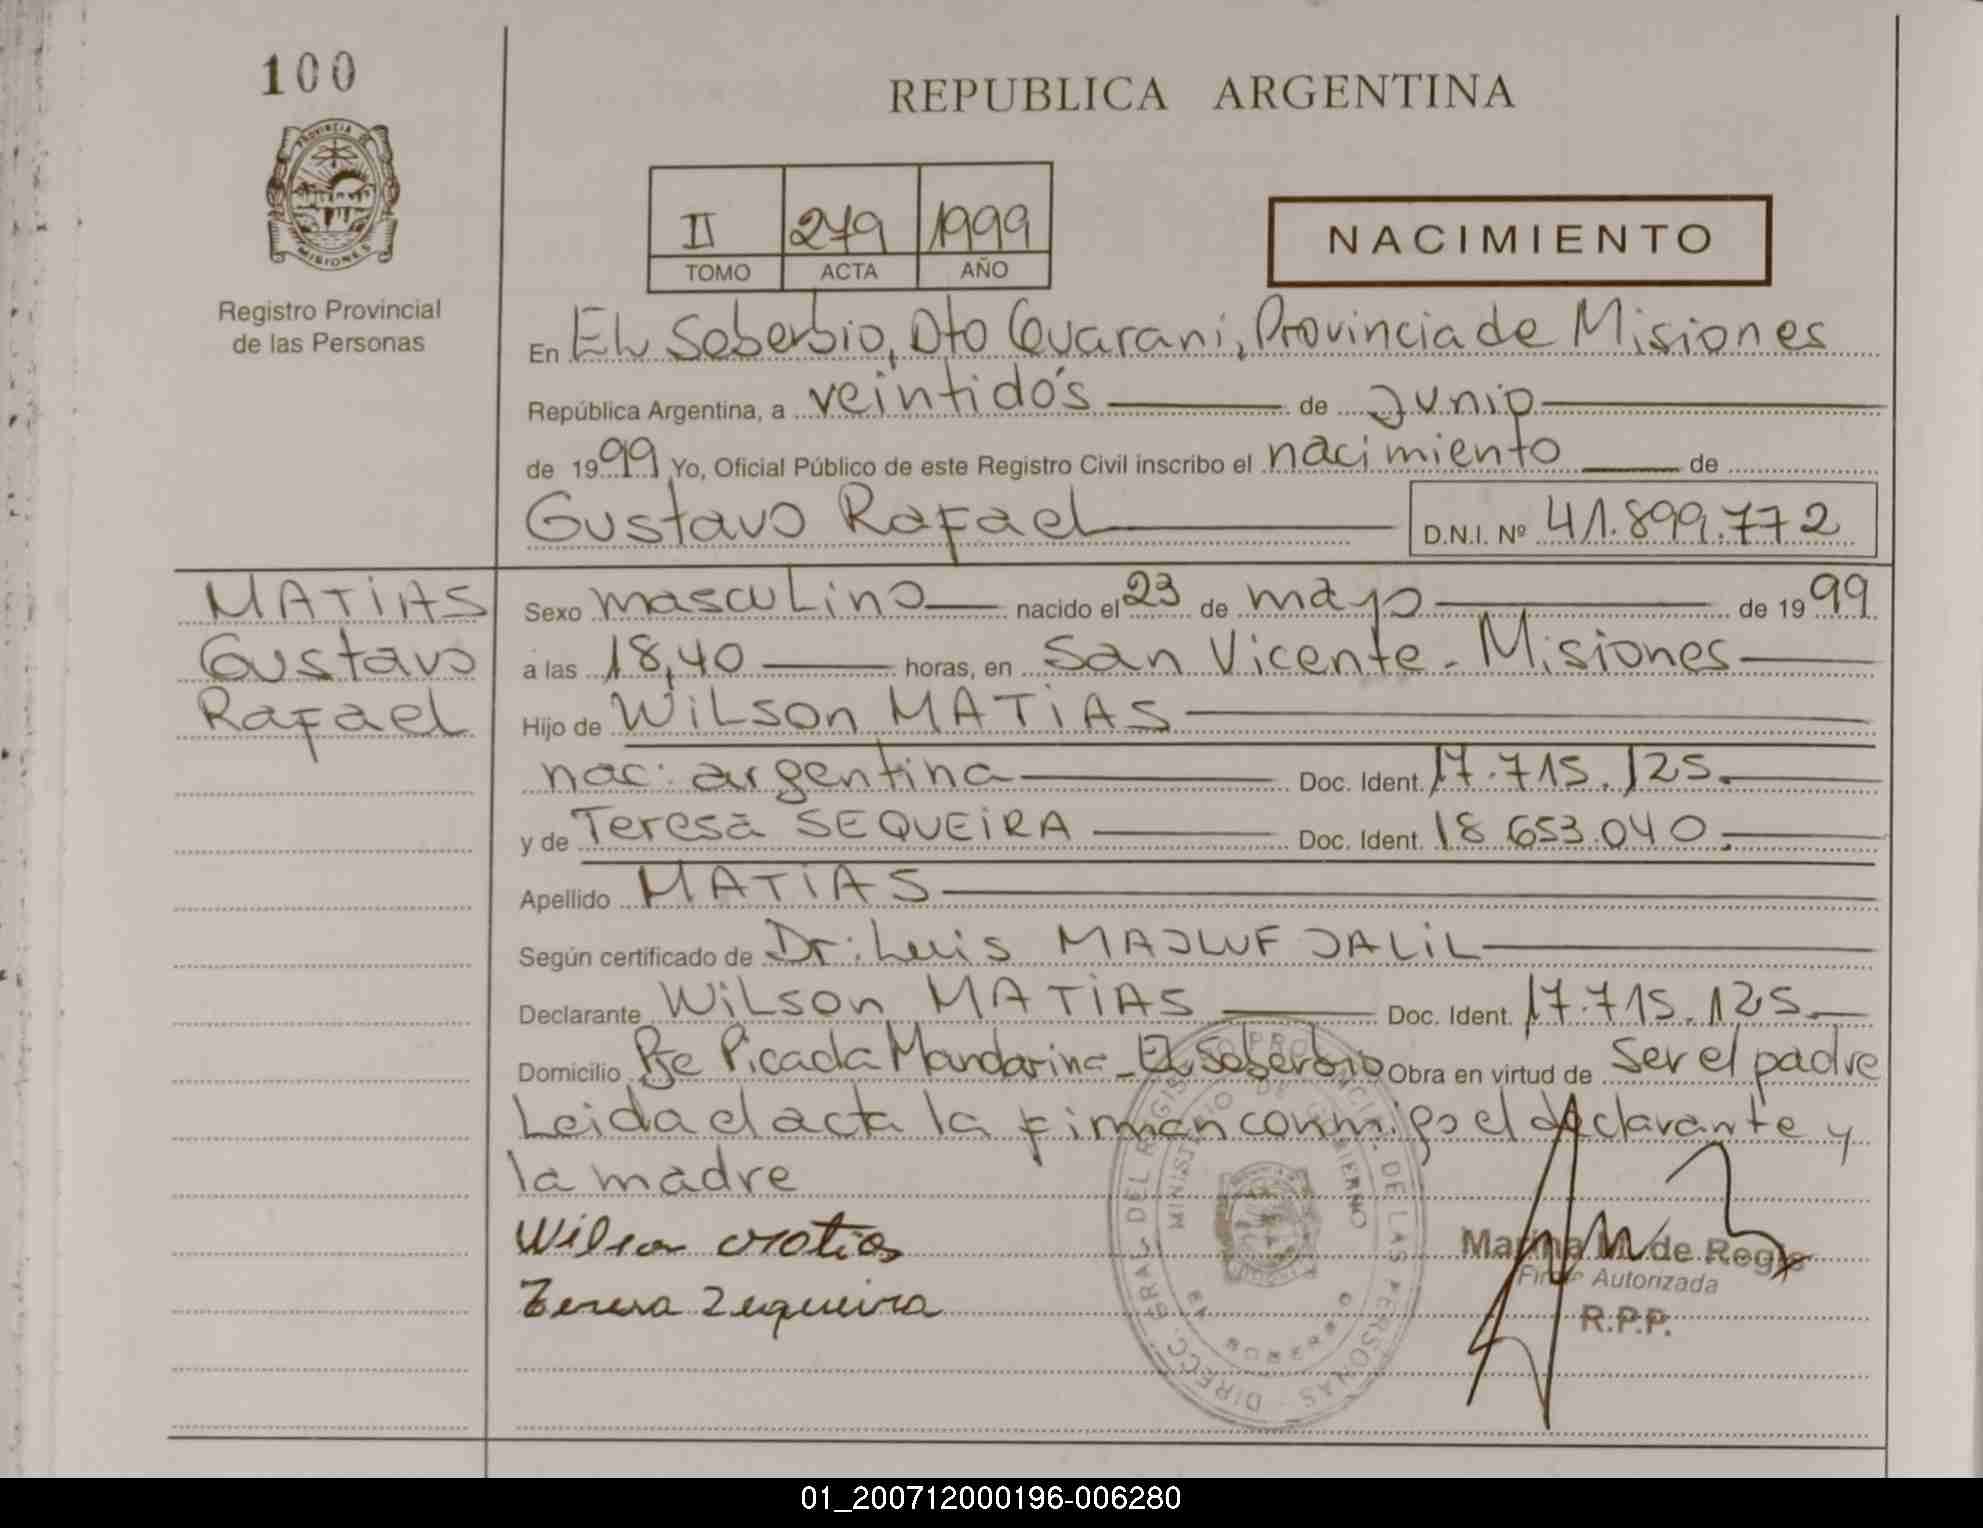 100
PROVINCIA DE
MISIONES
Registro Provincial
de las Personas
REPUBLICA ARGENTINA
II 279 1999
TOMO ACTA AÑO
NACIMIENTO
En EL Soberbio, Dto Guarani, Provincia de Misiones
República Argentina, a veintidós de Junio
de 1999 Yo, Oficial Público de este Registro Civil inscribo el nacimiento de
Gustavo Rafael D.N.I. Nº 41.899.772
MATiAS
Gustavo
Rafael
Sexo mascuLino nacido el 23 de mayo de 1999
a las 18,40 horas, en San Vicente - Misiones
Hijo de WiLson MATiAS
nac. argentina Doc. Ident. 17.715.125.
y de Teresa SEQUEiRA Doc. Ident. 18.653.040.
Apellido MATiAS
Según certificado de Dr: Luis MAJLUF JALiL
Declarante WiLson MATiAS Doc. Ident. 17.715.125.
Domicilio Pje Picada Mandarina - EL Soberbio Obra en virtud de Ser el padre
Leida el acta la firman conmigo el declarante y
la madre
Wilson Matias
Teresa Zequeira
DIRECC. GRAL. DEL REGISTRO PROVINCIAL DE LAS PERSONAS
MINISTERIO DE GOBIERNO
EL SOBERBIO
Marina M. de Regis
Firma Autorizada
R.P.P.
01_200712000196-006280